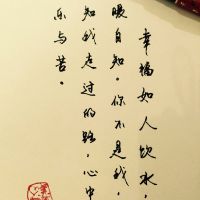 幸福如人饮水,
暖自知。你不是我,
知我走过的路,心中
乐与苦。